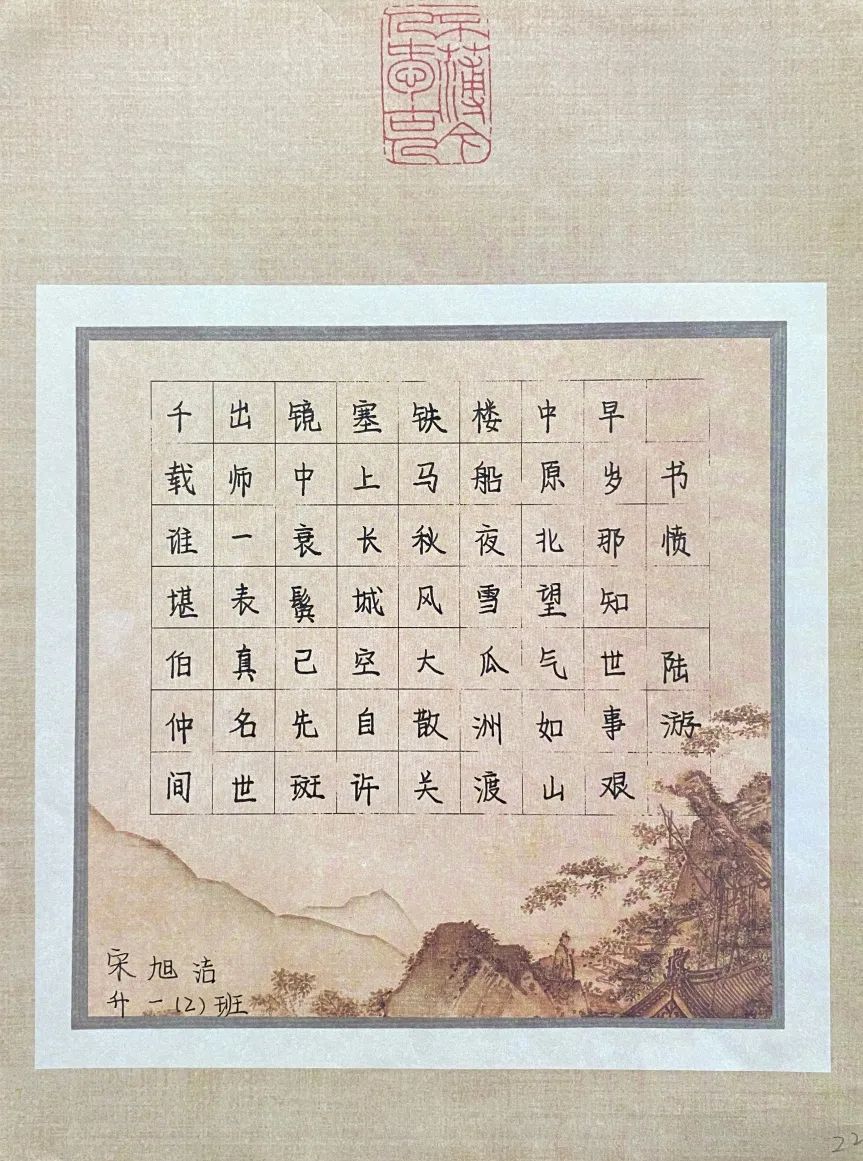 书愤 陆游
早岁那知世事艰
中原北望气如山
楼船夜雪瓜洲渡
铁马秋风大散关
塞上长城空自许
镜中衰鬓已先斑
出师一表真名世
千载谁堪伯仲间
宋旭洁
升一(2)班
22